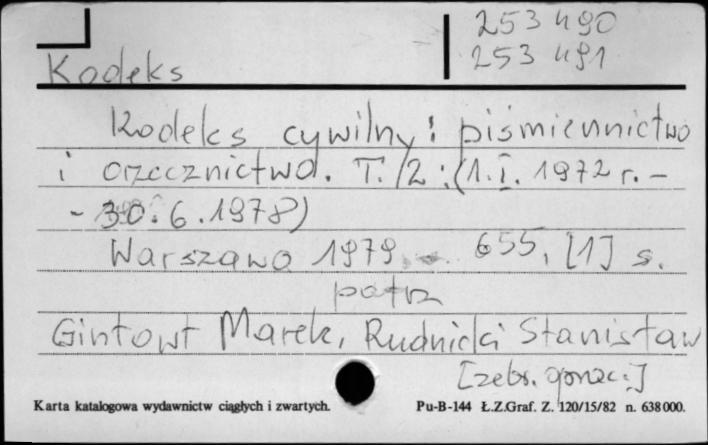 253 490
253 491
Kodeks
Kodeks cywilny: piśmiennictwo
i orzecznictwo. T. 2: (1.I. 1972 r. -
- 30.6.1978)
Warszawa 1979 655, [1] s.
patrz
Gintowt Marek, Rudnicki Stanisław
[zebr. i oprac.]
Karta katalogowa wydawnictw ciągłych i zwartych.
Pu-B-144 Ł.Z.Graf. Z. 120/15/82 n. 638000.